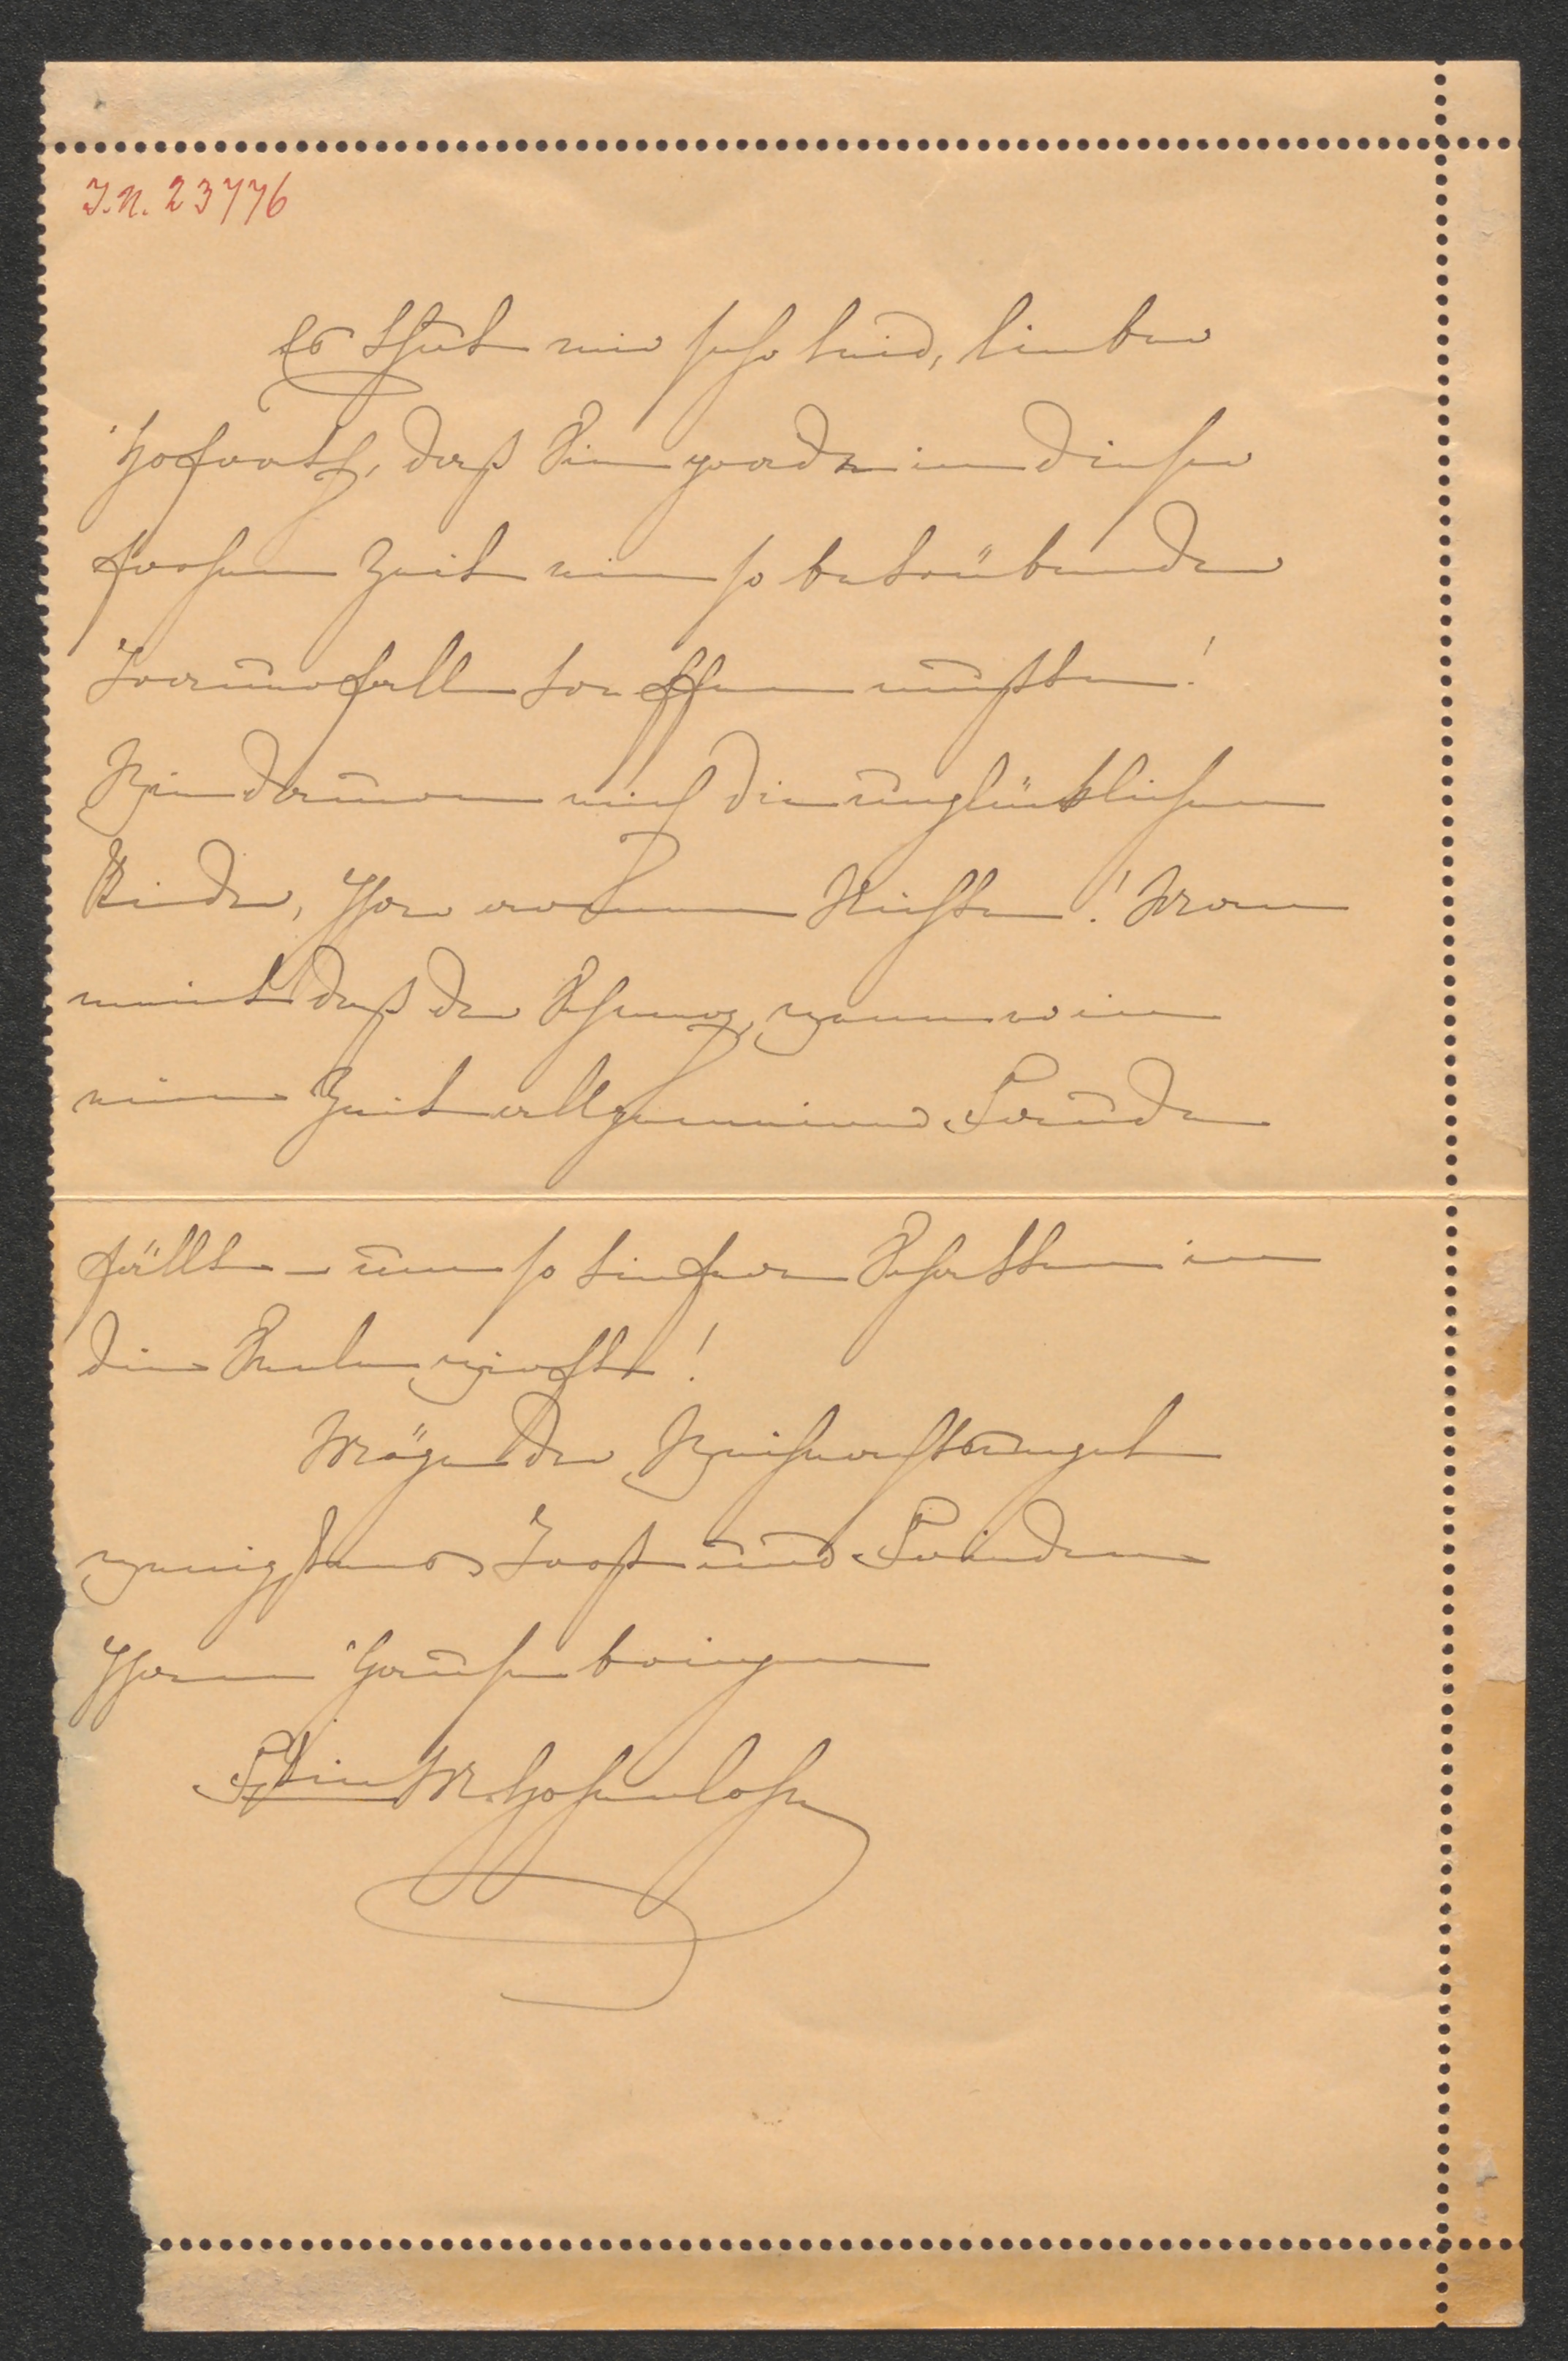 I.N. 23776
Es thut mir sehr leid, lieber
Hofrath, daß Sie gerade in dieser
frohen Zeit ein so betrübender
Trauerfall treffen mußte!
Wie dauern mich die unglücklichen
Kinder, Ihre armen Nichten! Man
meint daß der Schmerz, wenn er in
eine Zeit allgemeiner Freude
fällt – um so tiefere Schatten in
die Seele wirft!
Möge der Weihnachtsengel
wenigstens Trost und Frieden
Ihrem Hause bringen
Fstin M. Hohenlohe